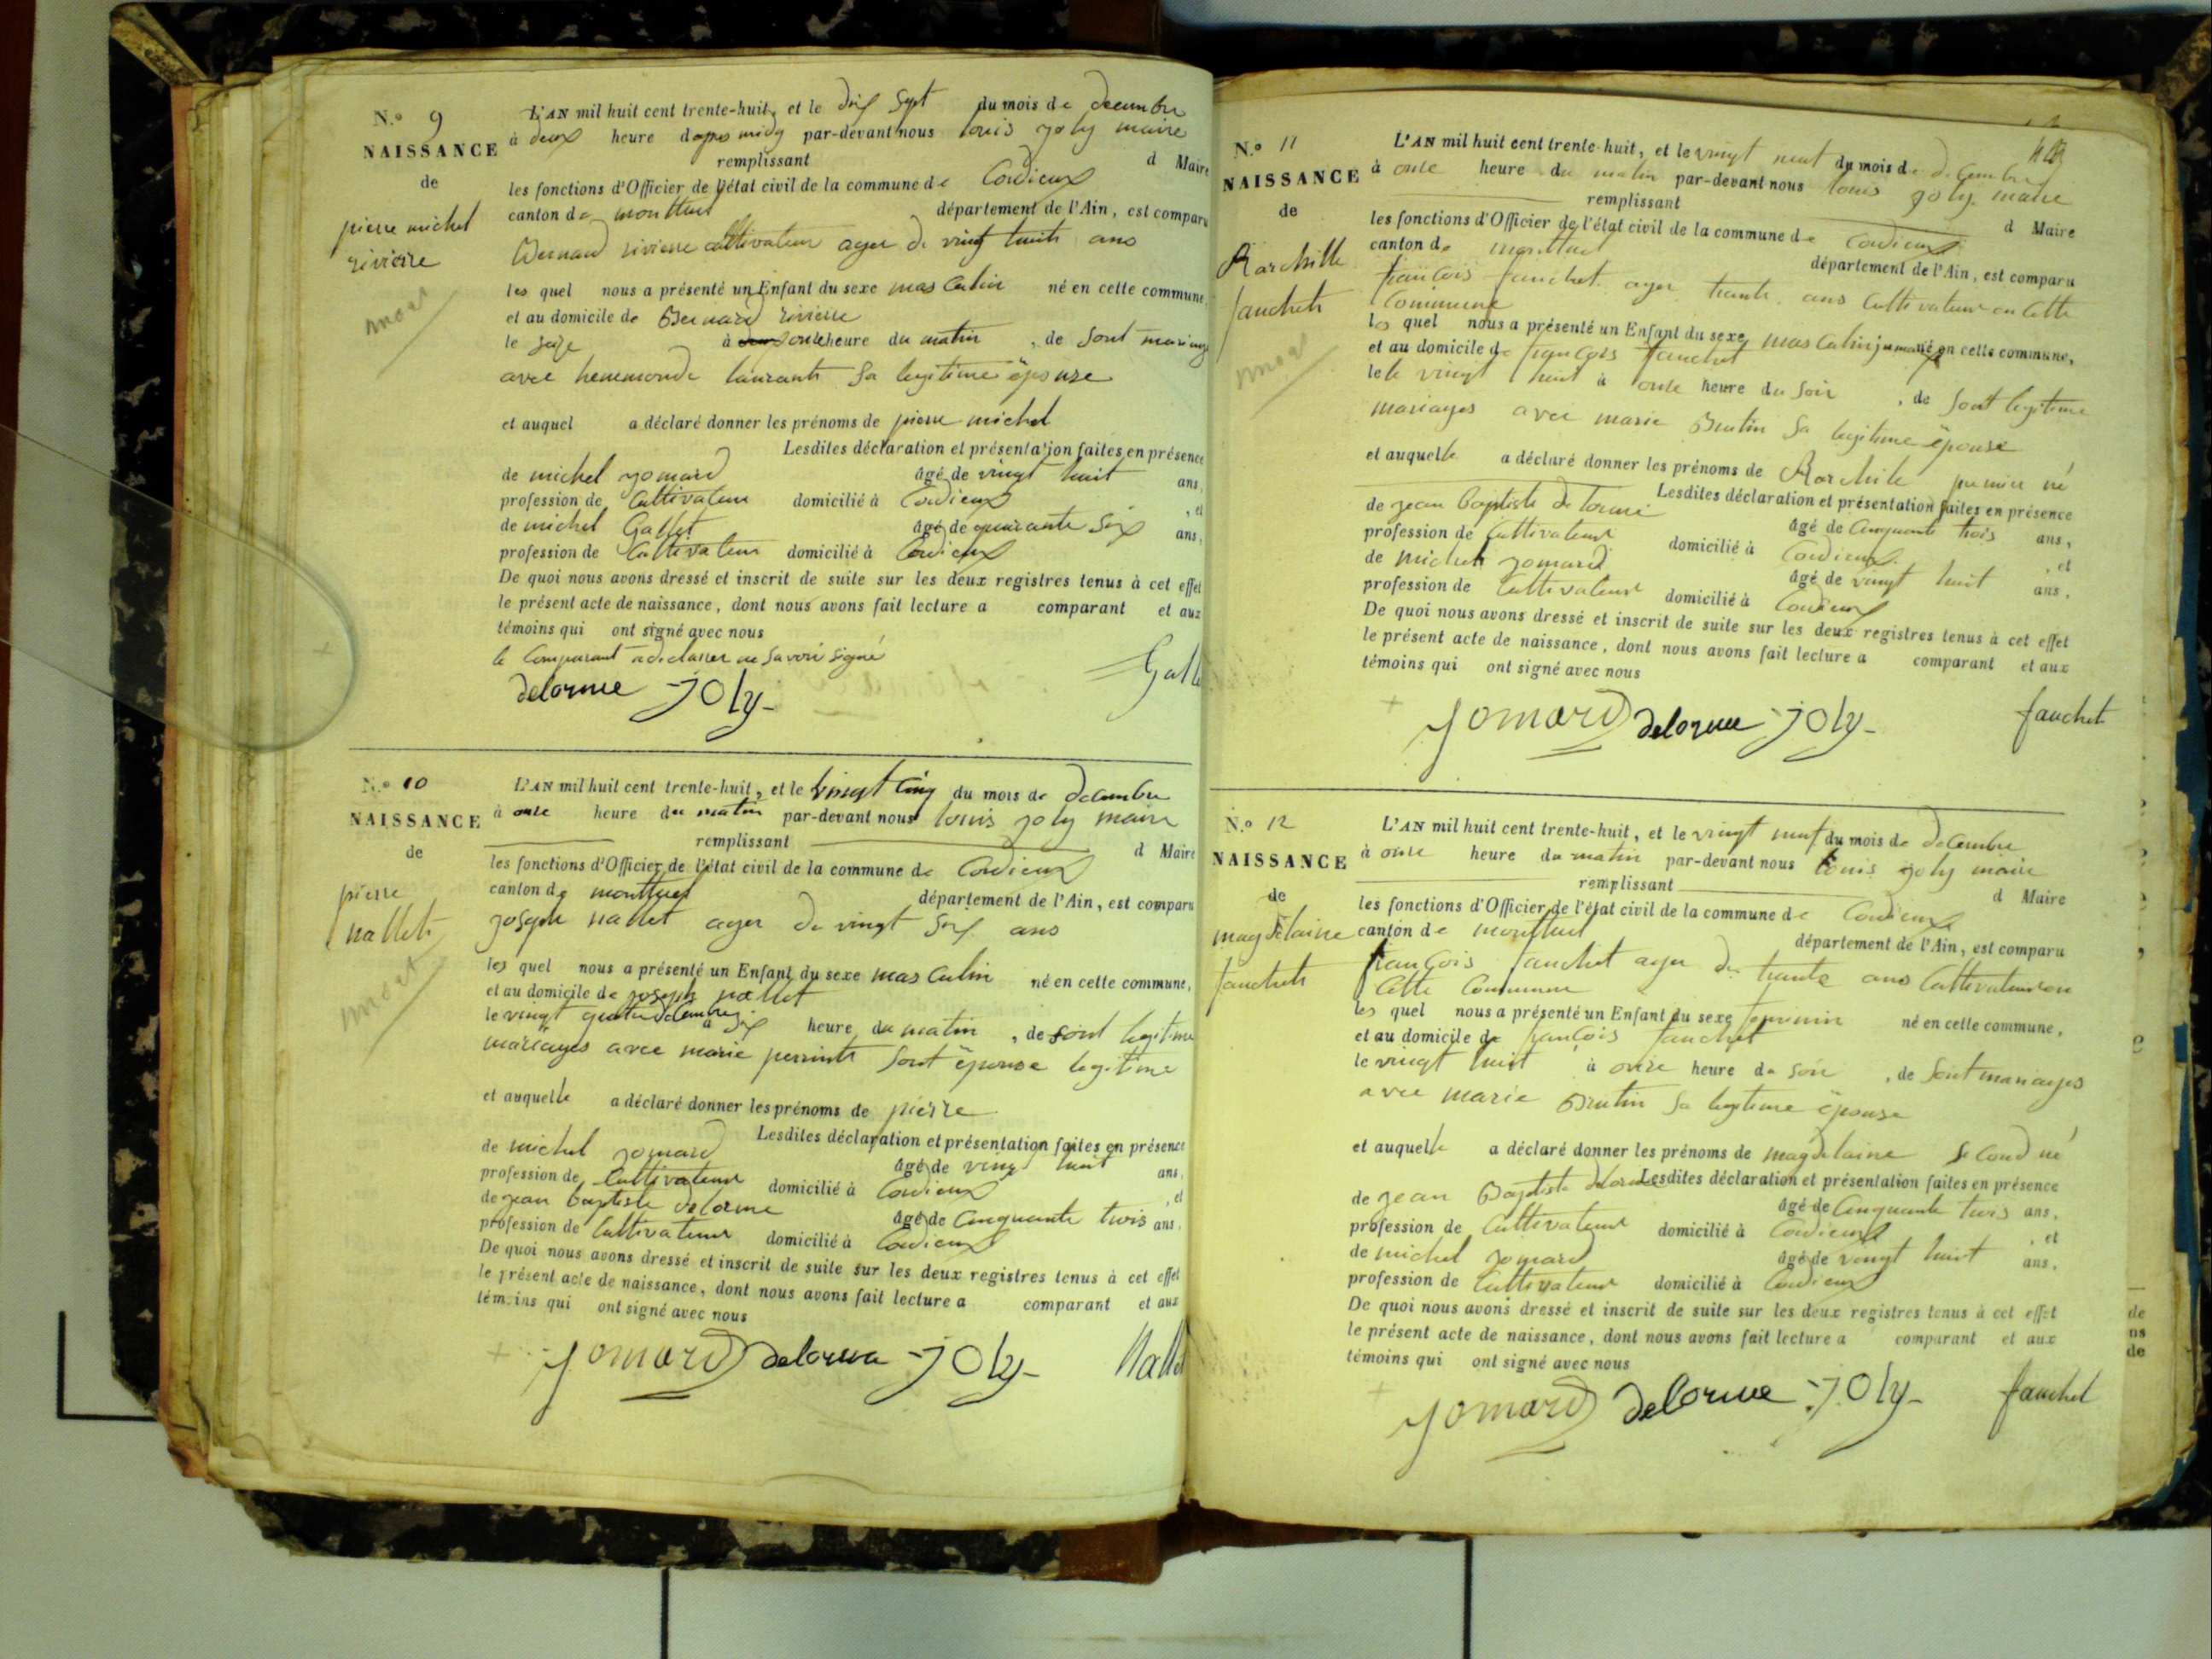 N.º 9
NAISSANCE
de
pierre michel
rivierre
L'AN mil huit cent trente-huit, et le dix Sept du mois de decembre
à deux heure d apres midy par-devant nous louis joly maire
remplissant d Maire
les fonctions d'Officier de l'état civil de la commune de Cordieux
canton de montluel département de l'Ain, est comparu
Bernard rivierre cultivateur ager de vingt huits ans
les quel nous a présenté un Enfant du sexe masculin né en cette commune,
et au domicile de Bernard rivierre
le seize à onze heure du matin , de Sont mariage
avec laurants Sa legitime épouse
et auquel a déclaré donner les prénoms de pierre michel
Lesdites déclaration et présentation faites en présence
de michel jomard âgé de vingt huit ans,
profession de Cultivateur domicilié à Cordieux , et
de michel Gallet âgé de quarante Six ans,
profession de Cultivateur domicilié à Cordieux
De quoi nous avons dressé et inscrit de suite sur les deux registres tenus à cet effet
le présent acte de naissance, dont nous avons fait lecture a comparant et aux
témoins qui ont signé avec nous
le Comparant a declarer ne Savoir signé
delorme joly Galle
N.º 10
NAISSANCE
de
pierre
nallets
L'AN mil huit cent trente-huit, et le vingt Cinq du mois de decembre
à onze heure du matin par-devant nous louis joly maire
remplissant d Maire
les fonctions d'Officier de l'état civil de la commune de Cordieux
canton de montluel département de l'Ain, est comparu
joseph nallet ager de vingt Six ans
les quel nous a présenté un Enfant du sexe masculin né en cette commune,
et au domicile de joseph nallet
le vingt quatre decembre à Six heure du matin , de sont legitime
mariages avec marie Sont épouse legitime
et auquelle a déclaré donner les prénoms de pierre
Lesdites déclaration et présentation faites en présence
de michel jomard âgé de vingt huit ans,
profession de Cultivateur domicilié à Cordieux , et
de jean baptiste delorme âgé de Cinquante trois ans,
profession de Cultivateur domicilié à Cordieux
De quoi nous avons dressé et inscrit de suite sur les deux registres tenus à cet effet
le présent acte de naissance, dont nous avons fait lecture a comparant et aux
témoins qui ont signé avec nous
jomard delorme joly Nallet
N.º 11
NAISSANCE
de
fauchets
L'AN mil huit cent trente-huit, et le vingt neuf du mois de decembre
à onze heure du matin par-devant nous louis joly maire
remplissant d Maire
les fonctions d'Officier de l'état civil de la commune de Cordieux
canton de montluel département de l'Ain, est comparu
francois fauchet ager trante ans Cultivateur en Cette
Commune
les quel nous a présenté un Enfant du sexe masculin né en cette commune,
et au domicile de francois fauchet
le le vingt huit à onze heure du Soir , de Sont legitime
mariages avec marie Brutin Sa legitime épouse
et auquelle a déclaré donner les prénoms de premier né
Lesdites déclaration et présentation faites en présence
de jean baptiste de lorme âgé de Cinquante trois ans,
profession de Cultivateur domicilié à Cordieux , et
de michel jomard âgé de vingt huit ans,
profession de Cultivateur domicilié à Cordieux
De quoi nous avons dressé et inscrit de suite sur les deux registres tenus à cet effet
le présent acte de naissance, dont nous avons fait lecture a comparant et aux
témoins qui ont signé avec nous
jomard delorme joly fauchet
N.º 12
NAISSANCE
de
magdelaine
fauchets
L'AN mil huit cent trente-huit, et le vingt neuf du mois de decembre
à onze heure du matin par-devant nous louis joly maire
remplissant d Maire
les fonctions d'Officier de l'état civil de la commune de Cordieux
canton de montluel département de l'Ain, est comparu
francois fauchet ager de trante ans Cultivateur en
Cette Commune
les quel nous a présenté un Enfant du sexe feminin né en cette commune,
et au domicile de francois fauchet
le vingt huit à onze heure du Soir , de Sont mariages
avec marie Brutin Sa legitime épouse
et auquelle a déclaré donner les prénoms de magdelaine Second né
Lesdites déclaration et présentation faites en présence
de jean Baptiste delorme âgé de Cinquante trois ans,
profession de Cultivateur domicilié à Cordieux , et
de michel jomard âgé de vingt huit ans,
profession de Cultivateur domicilié à Cordieux
De quoi nous avons dressé et inscrit de suite sur les deux registres tenus à cet effet
le présent acte de naissance, dont nous avons fait lecture a comparant et aux
témoins qui ont signé avec nous
jomard delorme joly fauchet